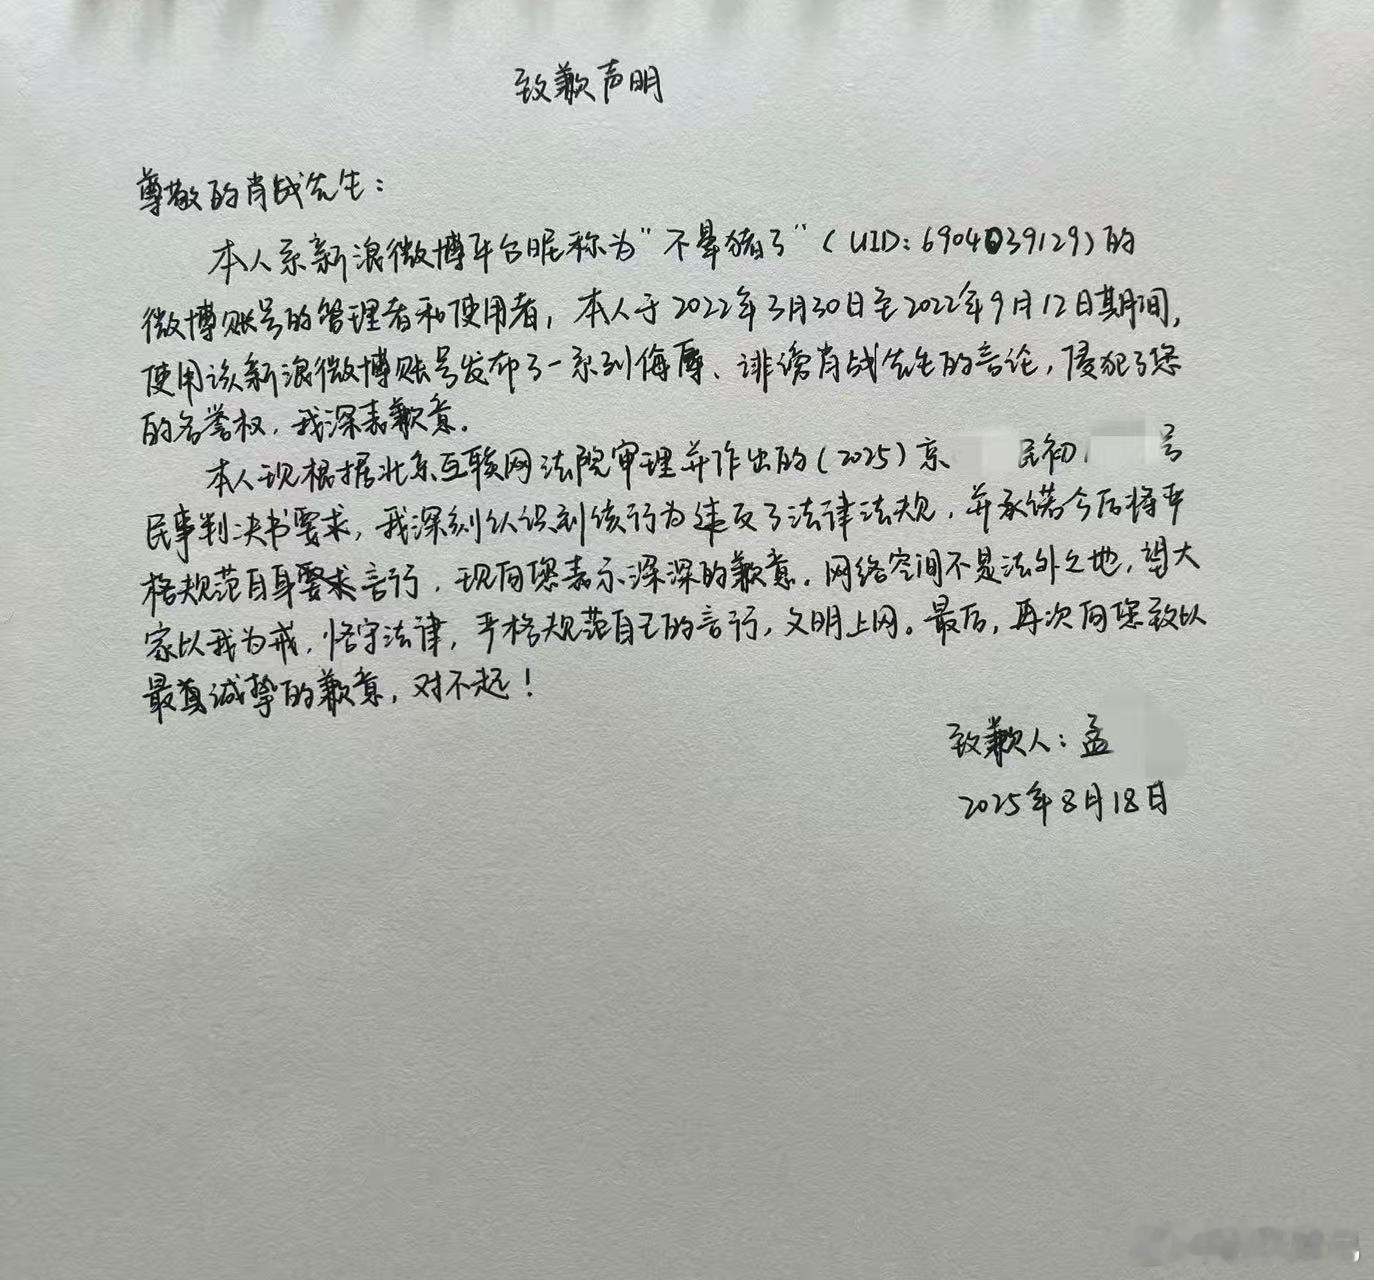 致歉声明
尊敬的肖战先生：
本人系新浪微博平台昵称为"不晕猪了"（UID：6904039129）的
微博账号的管理者和使用者，本人于2022年3月30日至2022年9月12日期间，
使用该新浪微博账号发布了一系列侮辱、诽谤肖战先生的言论，侵犯了您
的名誉权，我深表歉意。
本人现根据北京互联网法院审理并作出的（2025）京 民初 号
民事判决书要求，我深刻认识到该行为违反了法律法规，并承诺今后将严
格规范自身要求言行，现向您表示深深的歉意。网络空间不是法外之地，望大
家以我为戒，恪守法律，严格规范自己的言行，文明上网。最后，再次向您致以
最真诚挚的歉意，对不起！
致歉人：孟
2025年8月18日